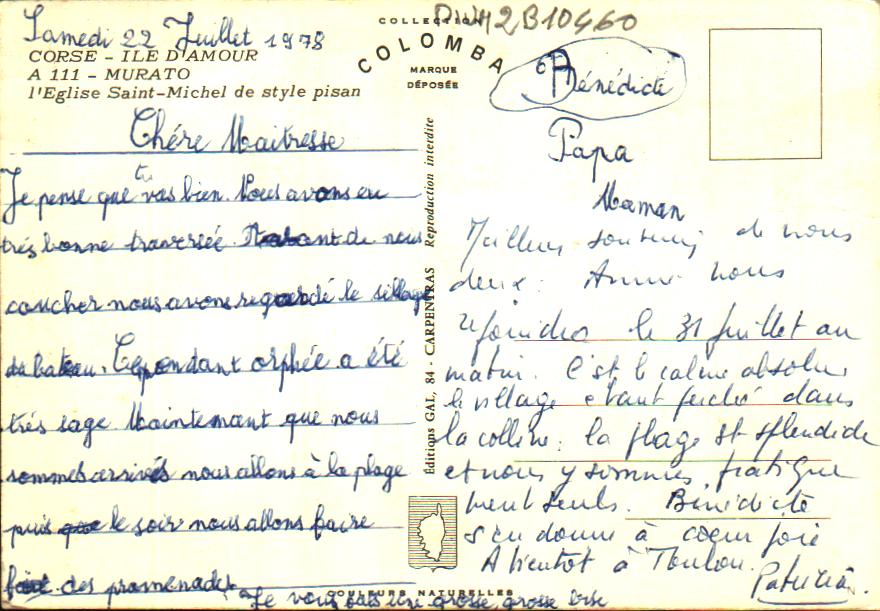 Samedi 22 Juillet 1978
CORSE - ILE D'AMOUR
A 111 - MURATO
l'Eglise Saint-Michel de style pisan
Chére Maitresse
Je pense que tu vas bien. Nous avons eu
trés bonne traversée. Avant de nous
coucher nous avons regardé le sillage
du bateau. Cependant orphée a été
trés sage Maintenant que nous
sommes arrivés nous allons à la plage
puis que le soir nous allons faire
des promenades
Je vous fais une grosse, grosse bise
COLLECTION
COLOMBA
MARQUE
DÉPOSÉE
Éditions GAL, 84 - CARPENTRAS Reproduction interdite
COULEURS NATURELLES
DWH2B10460
Bénédicte
Papa
Maman
Meilleurs souvenirs de nous
deux. Annie nous
rejoindra le 31 juillet au
matin. C'est le calme absolu
le village étant perché dans
la colline. la plage est splendide
et nous y sommes pratique
ment seuls. Bénédicte
s'en donne à coeur joie
A bientot à Toulon.
Patricia